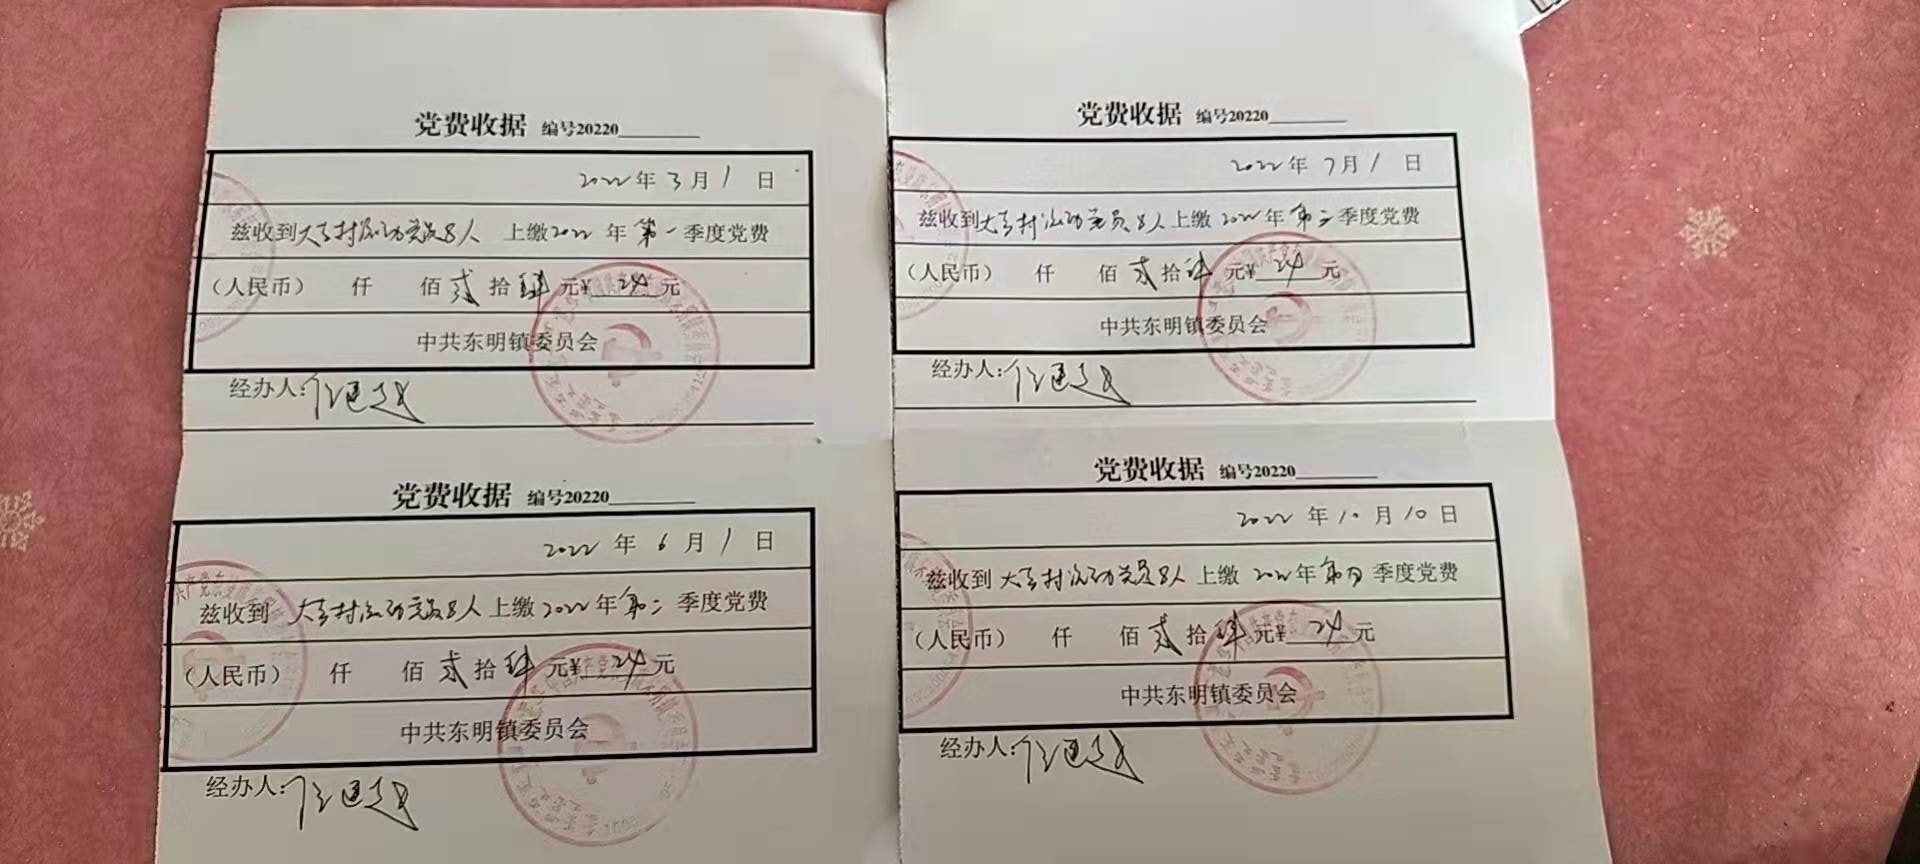 党费收据 编号20220
2022年3月1日
兹收到大 村流动党员8人 上缴2022年第一季度党费
（人民币） 仟 佰贰拾肆元¥24元
中共东明镇委员会
经办人：
党费收据 编号20220
2022年7月1日
兹收到大 村流动党员8人上缴2022年第三季度党费
（人民币） 仟 佰贰拾肆元¥24元
中共东明镇委员会
经办人：
党费收据 编号20220
2022年6月1日
兹收到 大 村流动党员8人上缴2022年第二季度党费
（人民币） 仟 佰贰拾肆元¥24元
中共东明镇委员会
经办人：
党费收据 编号20220
2022年10月10日
兹收到大 村流动党员8人上缴2022年第四季度党费
（人民币） 仟 佰贰拾肆元¥24元
中共东明镇委员会
经办人：